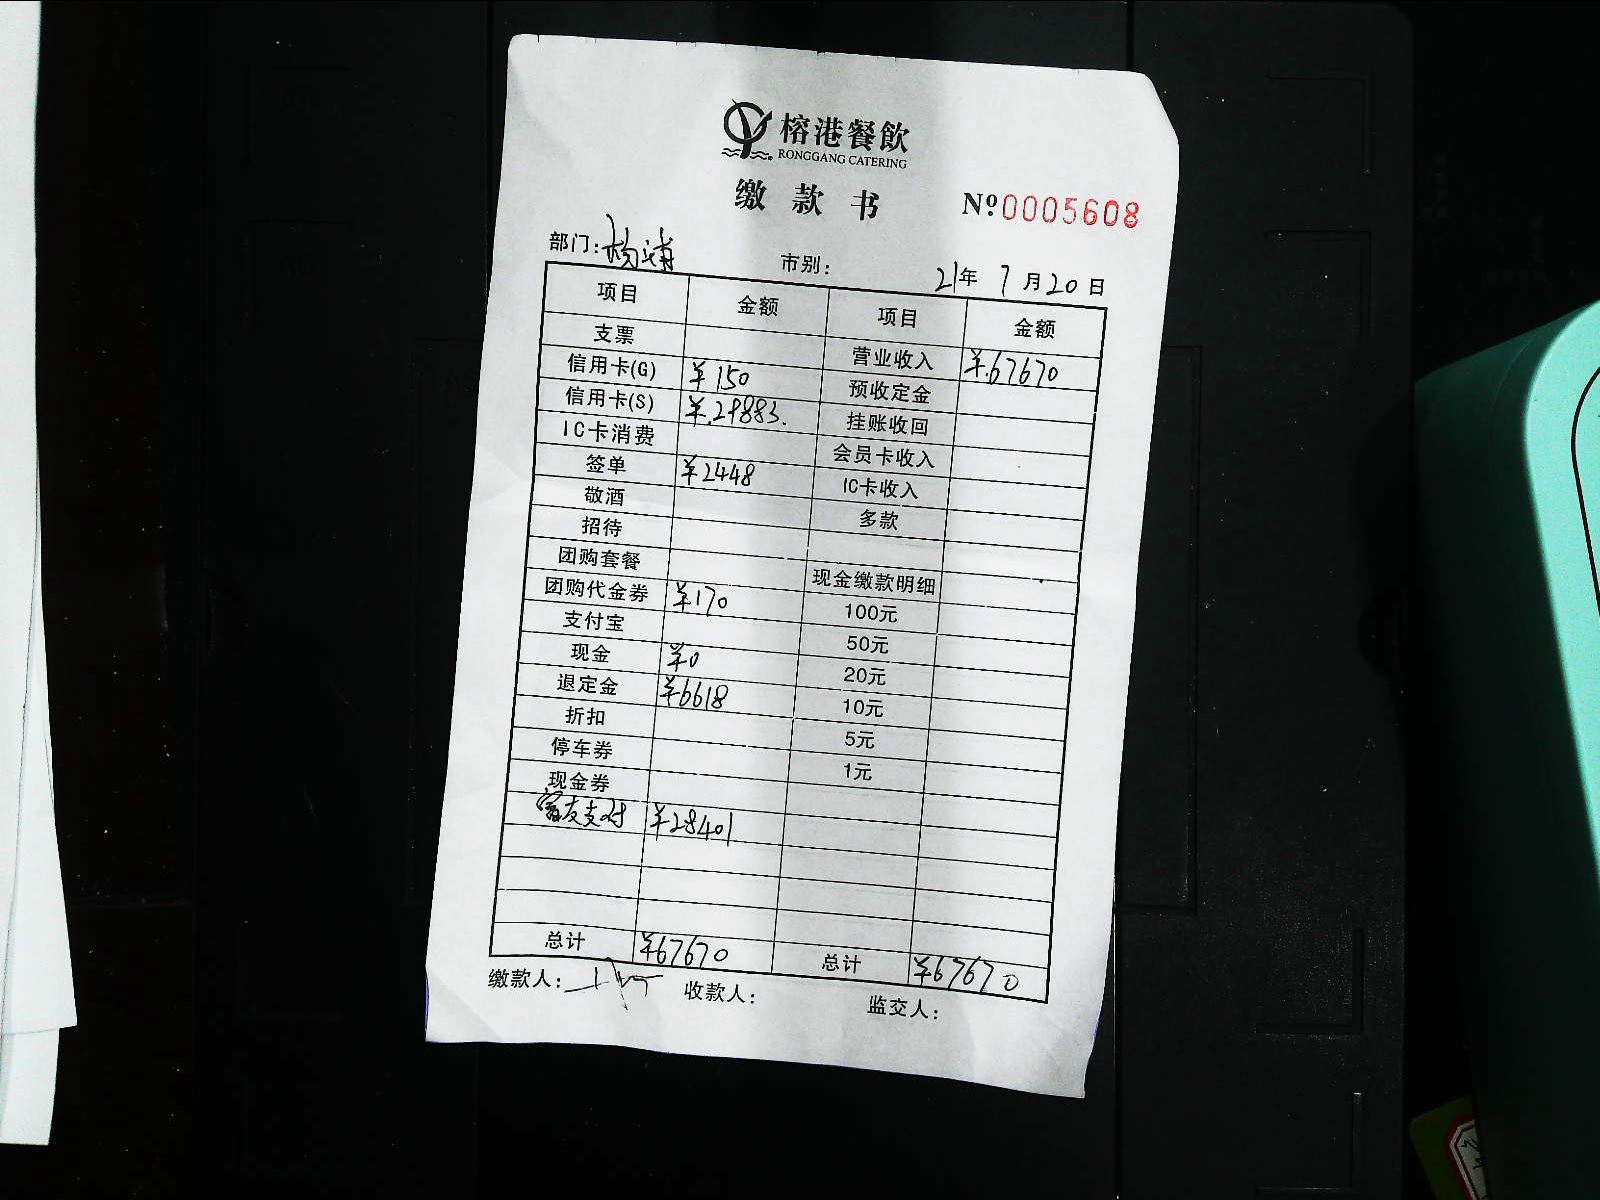 榕港餐飲
RONGGANG CATERING
缴款书 Nº0005608
部门: 杨浦 市别: 21年7月20日
项目 金额 项目 金额
支票 营业收入 ¥.67670
信用卡(G) ¥150 预收定金
信用卡(S) ¥.29883. 挂账收回
IC卡消费 会员卡收入
签单 ¥2448 IC卡收入
敬酒 多款
招待
团购套餐 现金缴款明细
团购代金券 ¥170 100元
支付宝 50元
现金 ¥0 20元
退定金 ¥6618 10元
折扣 5元
停车券 1元
现金券
支付 ¥28401
总计 ¥67670 总计 ¥67670
缴款人: 收款人: 监交人: